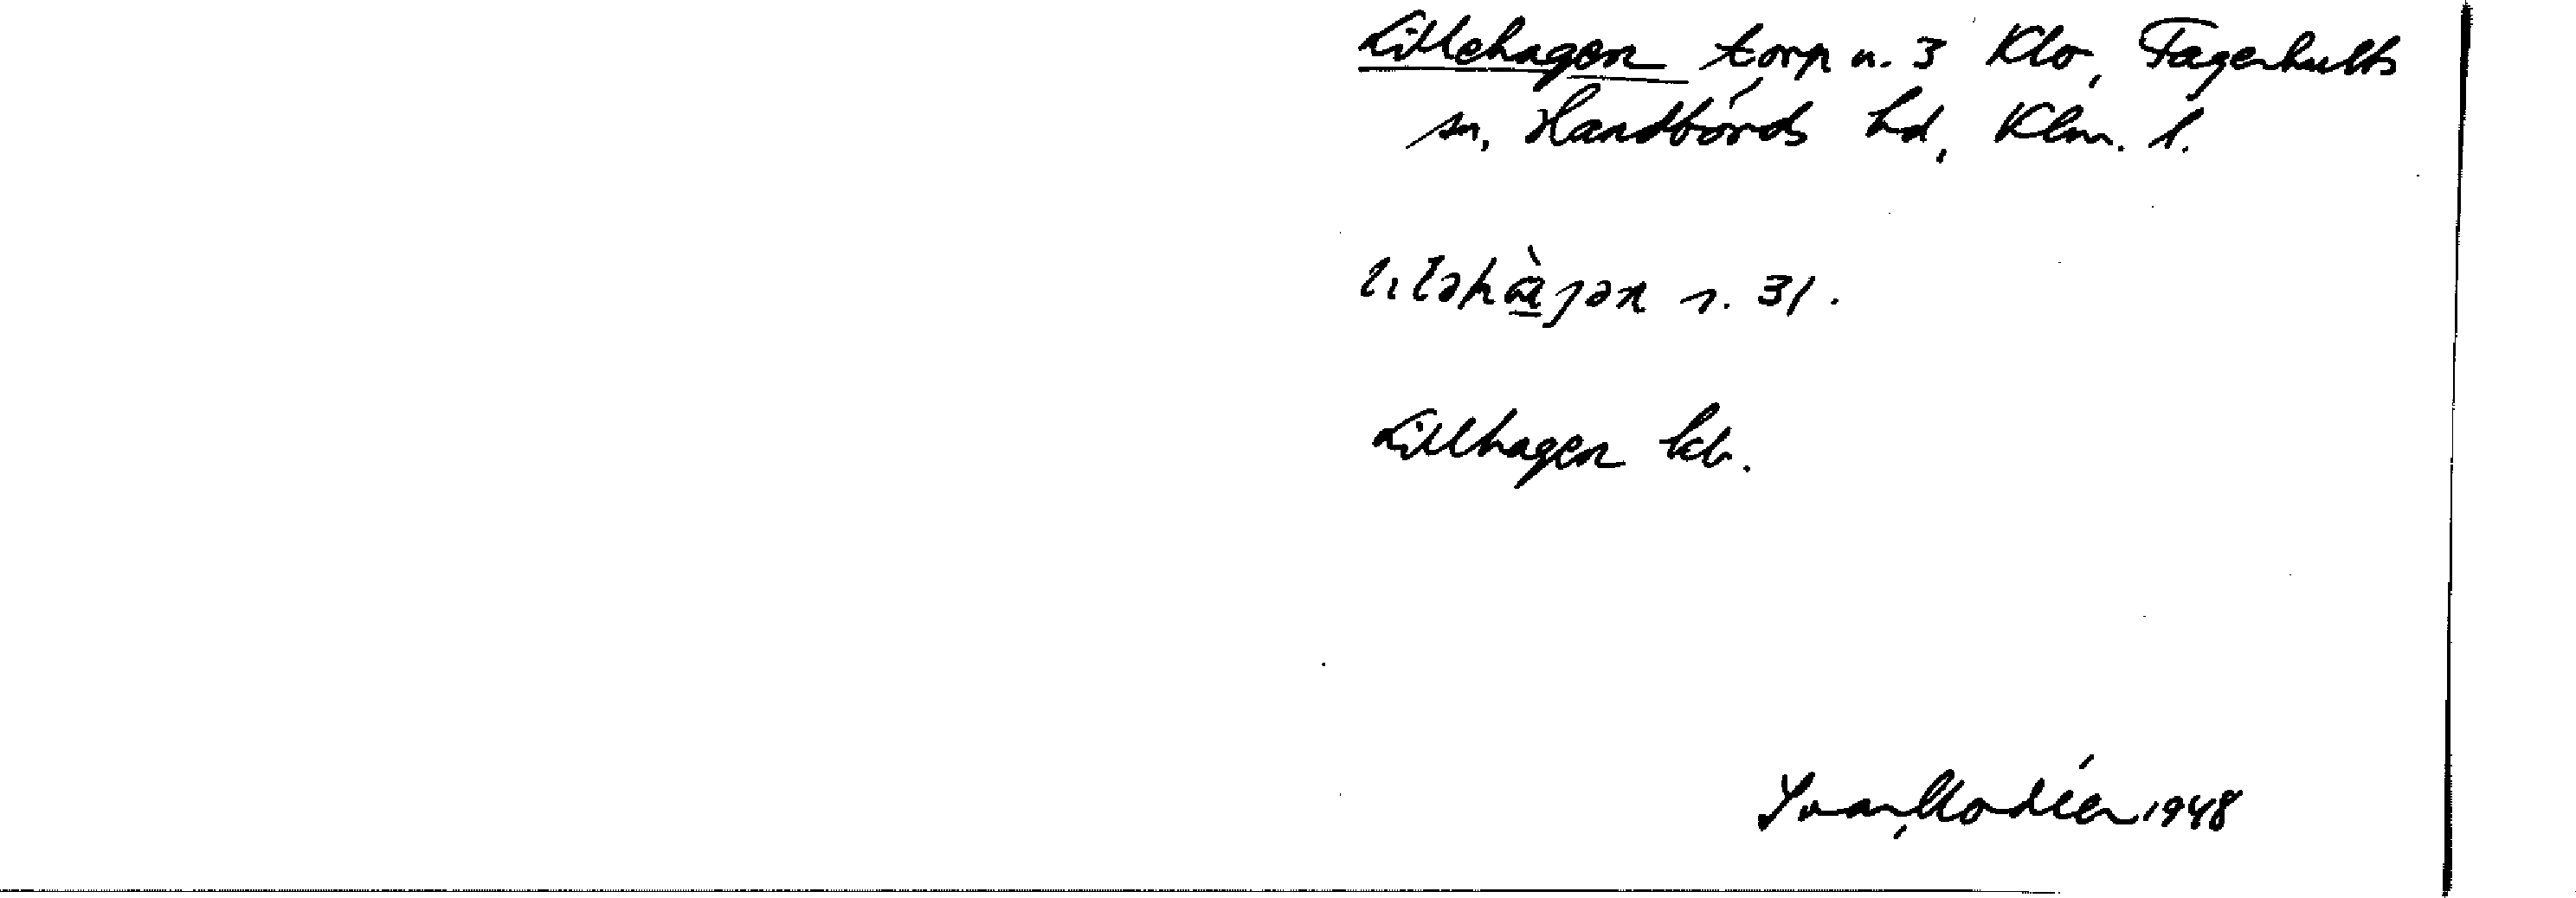 Lillehagen torp u. 3 Klo, Fagerhults
sn, Handbörds hd, Klm. l.
lıləhàgən s. 31.
Lillhagen kb.
Ivar Modéer 1948